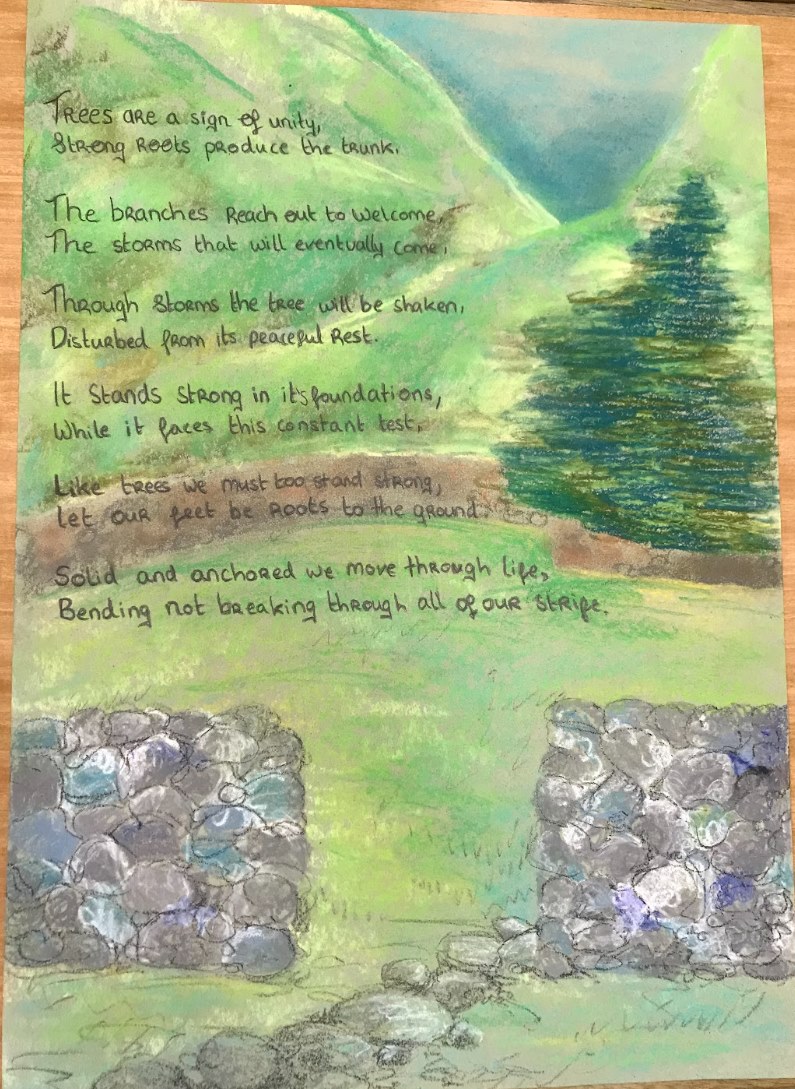 Trees are a sign of unity,
Strong Roots produce the trunk.
The branches Reach out to welcome,
The storms that will eventually come,
Through Storms the tree will be shaken,
Disturbed from its peaceful Rest.
It Stands Strong in it's foundations,
While it faces this constant test,
Like trees we must too stand strong,
Let our feet be Roots to the ground.
Solid and anchored we move through life,
Bending not breaking through all of our strife.